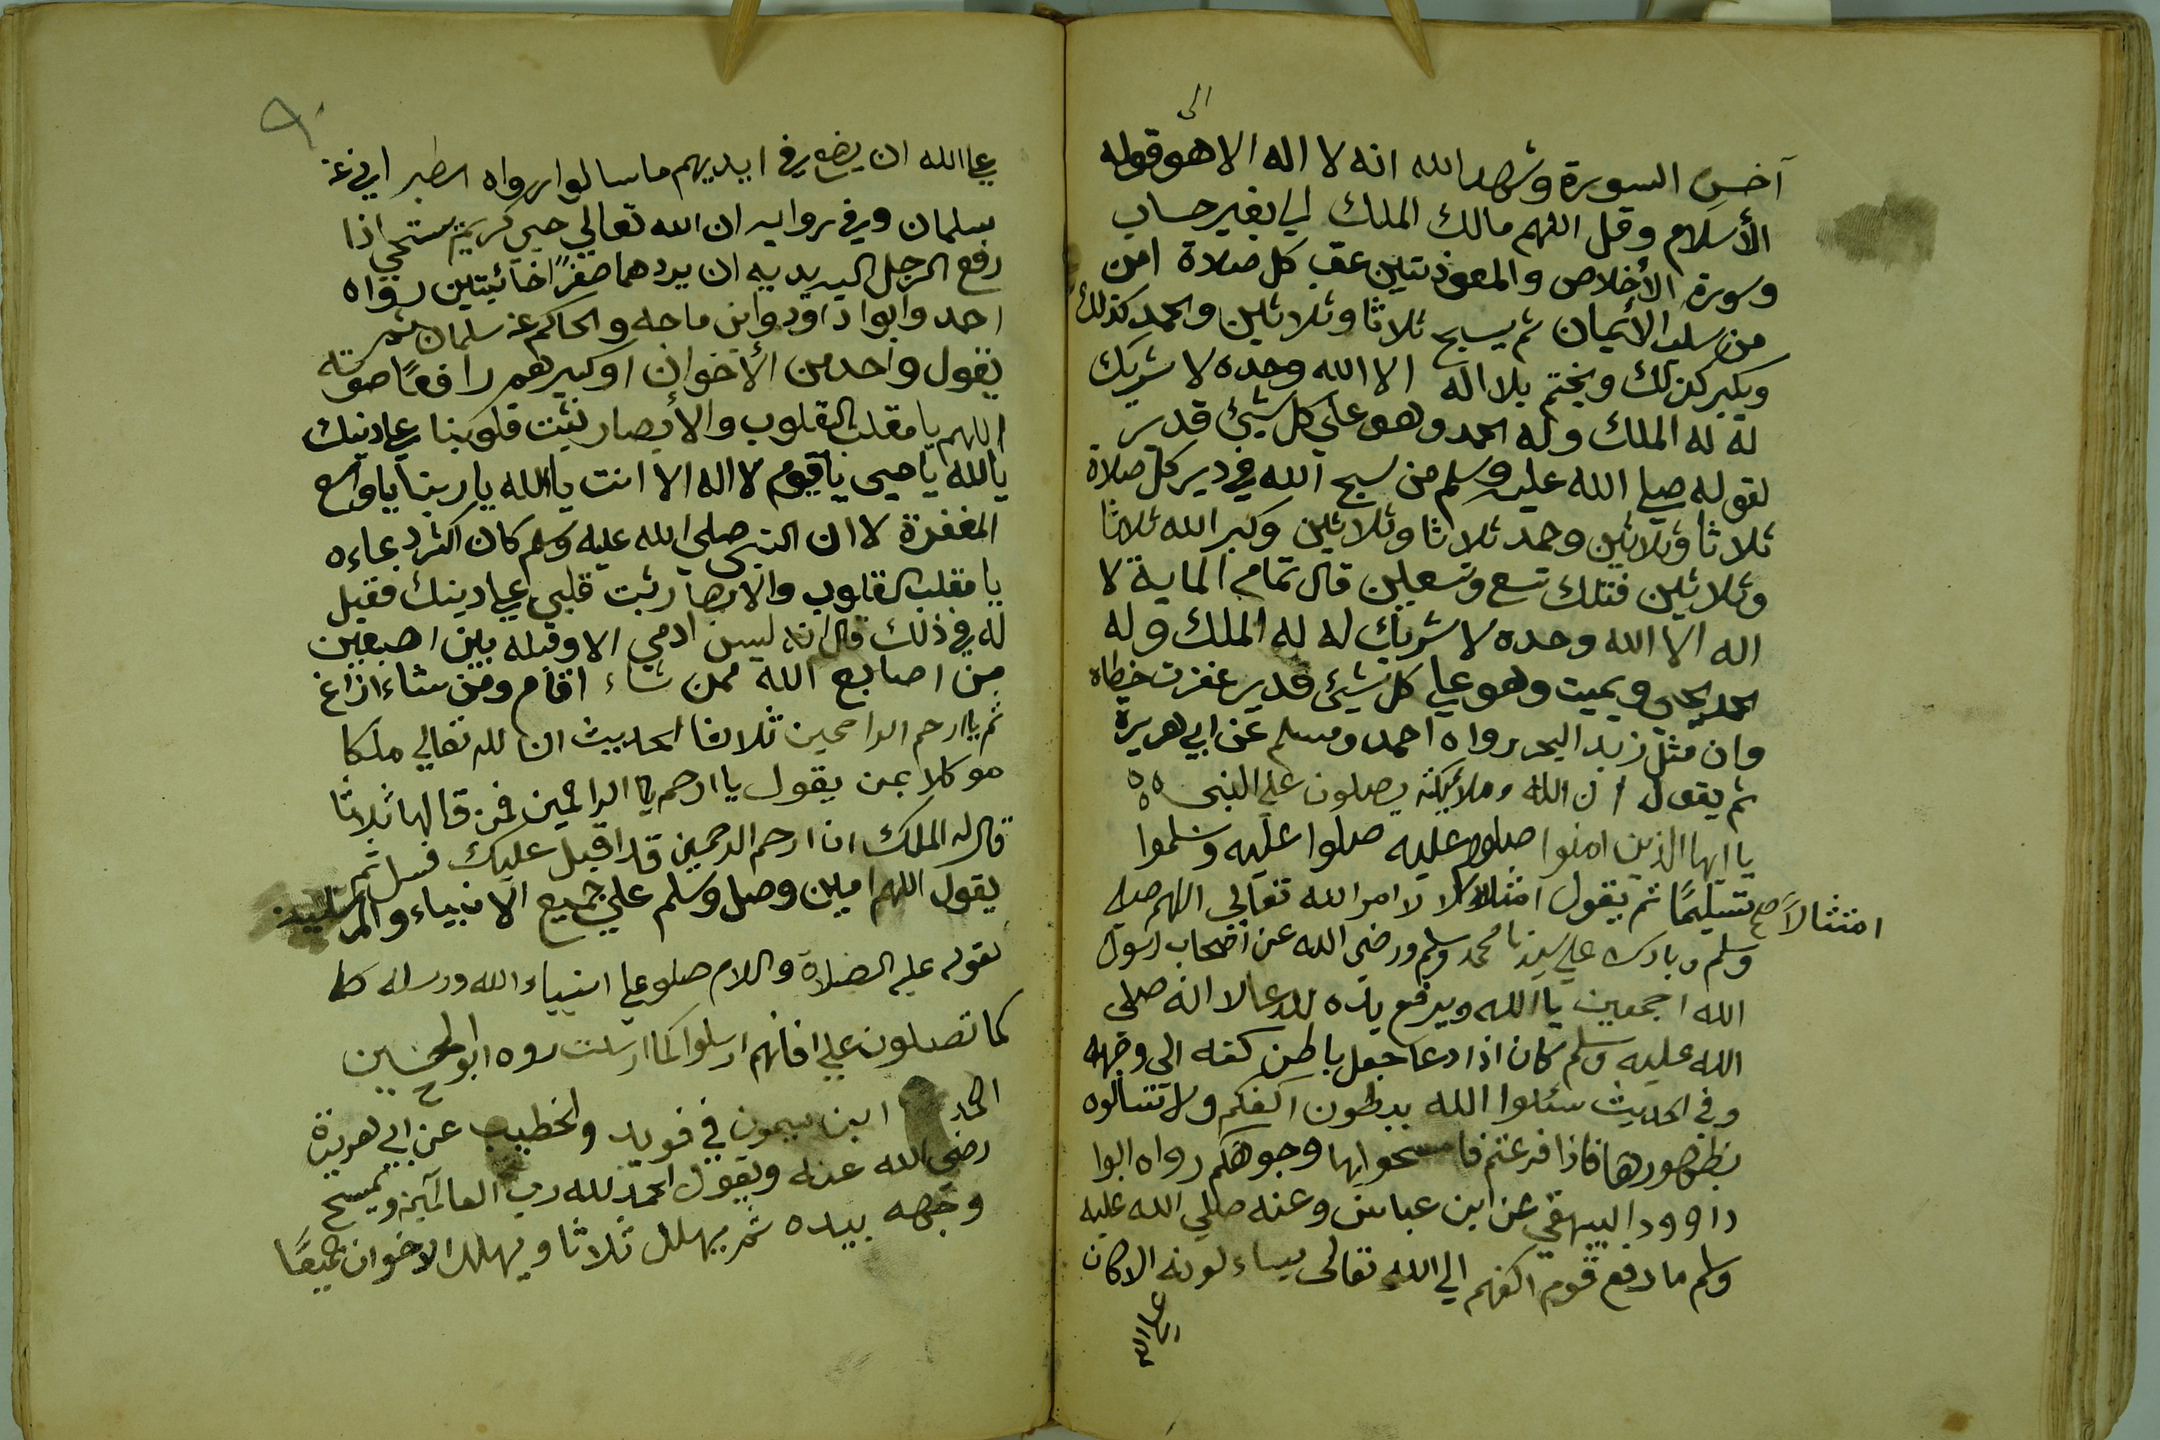 الى
آخر السورة وشهد الله انه لا اله الا هو وقوله
الأسلام وقل اللهم مالك الملك الى بغير حساب
وسورة الأخلاص والمعوذتين عقب كل صلاة امن
من سلب الأيمان ثم يسبح ثلاثا وثلاثين والحمد كذلك
ويكبر كذلك ويختم بلا اله الا الله وحده لا شريك
له له الملك وله الحمد وهو على كل شيئ قدير
لقوله صلى الله عليه وسلم من سبح الله في دبر كل صلاة
ثلاثا وثلاثين وحمد ثلاثا وثلاثين وكبر الله ثلاثا
وثلاثين فتلك تسع وتسعين قال تمام الماية لا
اله الا الله وحده لا شريك له له الملك وله
الحمد يحي ويميت وهو على كل شيئ قدير غفرت خطاه
وان مثل زبد البحر رواه احمد ومسلم عن ابي هريرة
ثم يقول ان الله وملائيكته يصلون على النبي
يا ايها الذين امنوا صلوا عليه صلوا عليه وسلموا
تسليمًا ثم يقول امتثلالا لامر الله تعالى اللهم صل
امتثالاً صح
وسلم وبارك على سيدنا محمد وسلم ورضى الله عن أصحاب رسول
الله اجمعين يا الله ويرفع يده للدعا لانه صلى
الله عليه وسلم كان اذا دعا جعل باطن كفه الى وجهه
وفي الحديث سئلوا الله ببطون اكفكم ولا تسالوه
بظهورها فاذا فرغتم فامسحوا بها وجوهكم رواه ابوا
داوود البيهقي عن ابن عباس وعنه صلى الله عليه
وسلم ما رفع قوم اكفهم الى الله تعالى يساءلونه الا كان
على الله
على الله ان يضع في ايديهم ما سالوا رواه الطبراني عن
سلمان وفي رواية ان الله تعالى حيي كريم يستحي اذا
رفع الرجل اليه يديه ان يردهما صفرًا خائيتين رواه
احمد وابوا داود وابن ماجه والحاكم عن سلمان ثم
يقول واحد من الأخوان اوكبيرهم رافعًا صوته
اللهم يا مقلب القلوب والأبصار ثبت قلوبنا على دينك
يالله يا حيى يا قيوم لا اله الا انت يا الله يا ربنا يا واسع
المغفرة لا ان النبى صلى الله عليه وسلم كان اكثر دعاءه
يا مقلب القلوب والابصار ثبت قلبي على دينك فقيل
له في ذلك قال انه ليس ادمي الا وقبله بين اصبعين
من اصابع الله فمن شاء اقام ومن شاء ازاغ
ثم يا ارحم الراحمين ثلاثا الحديث ان لله تعالى ملكا
موكلا بمن يقول يا ارحم يا الراحمين فمن قالها ثلاثا
قال له الملك ان ارحم الرحمين قد اقبل عليك فسل ثم
يقول اللهم امين وصل وسلم على جميع الانبياء والمرسلين
لقوله عليه الصلاة والسلام صلو على انبياء الله ورسله كما
كما تصلون على فانهم ارسلوا كما ارسلت روه ابو الحسين
احمد ابن سيمون في فويد والخطيب عن ابي هريرة
رضى الله عنه ويقول الحمد لله رب العالمين ويمسح
وجهه بيده ثم يهلل ثلاثا ويهلل الاخوان جميعًا